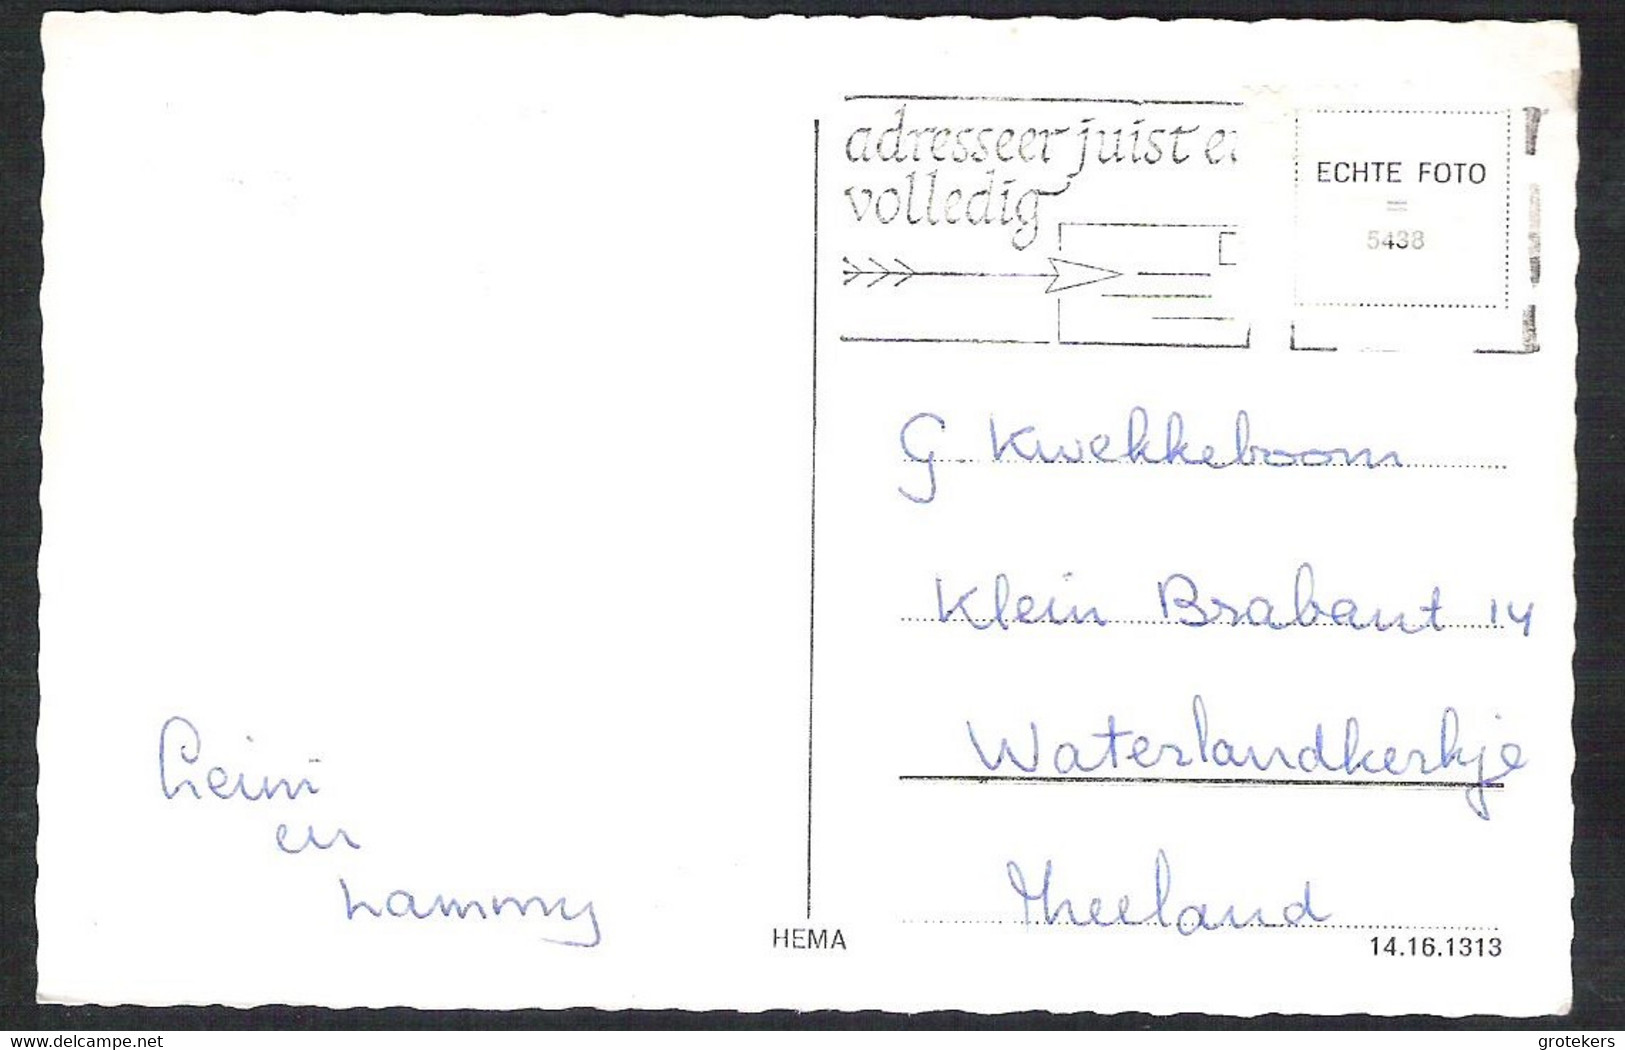 adresseer juist e
volledig
ECHTE FOTO
=
5438
G Kwekkeboom
Klein Brabant 14
Waterlandkerkje
en
Lammy
HEMA
14.16.1313
delcampe.net
grotekers